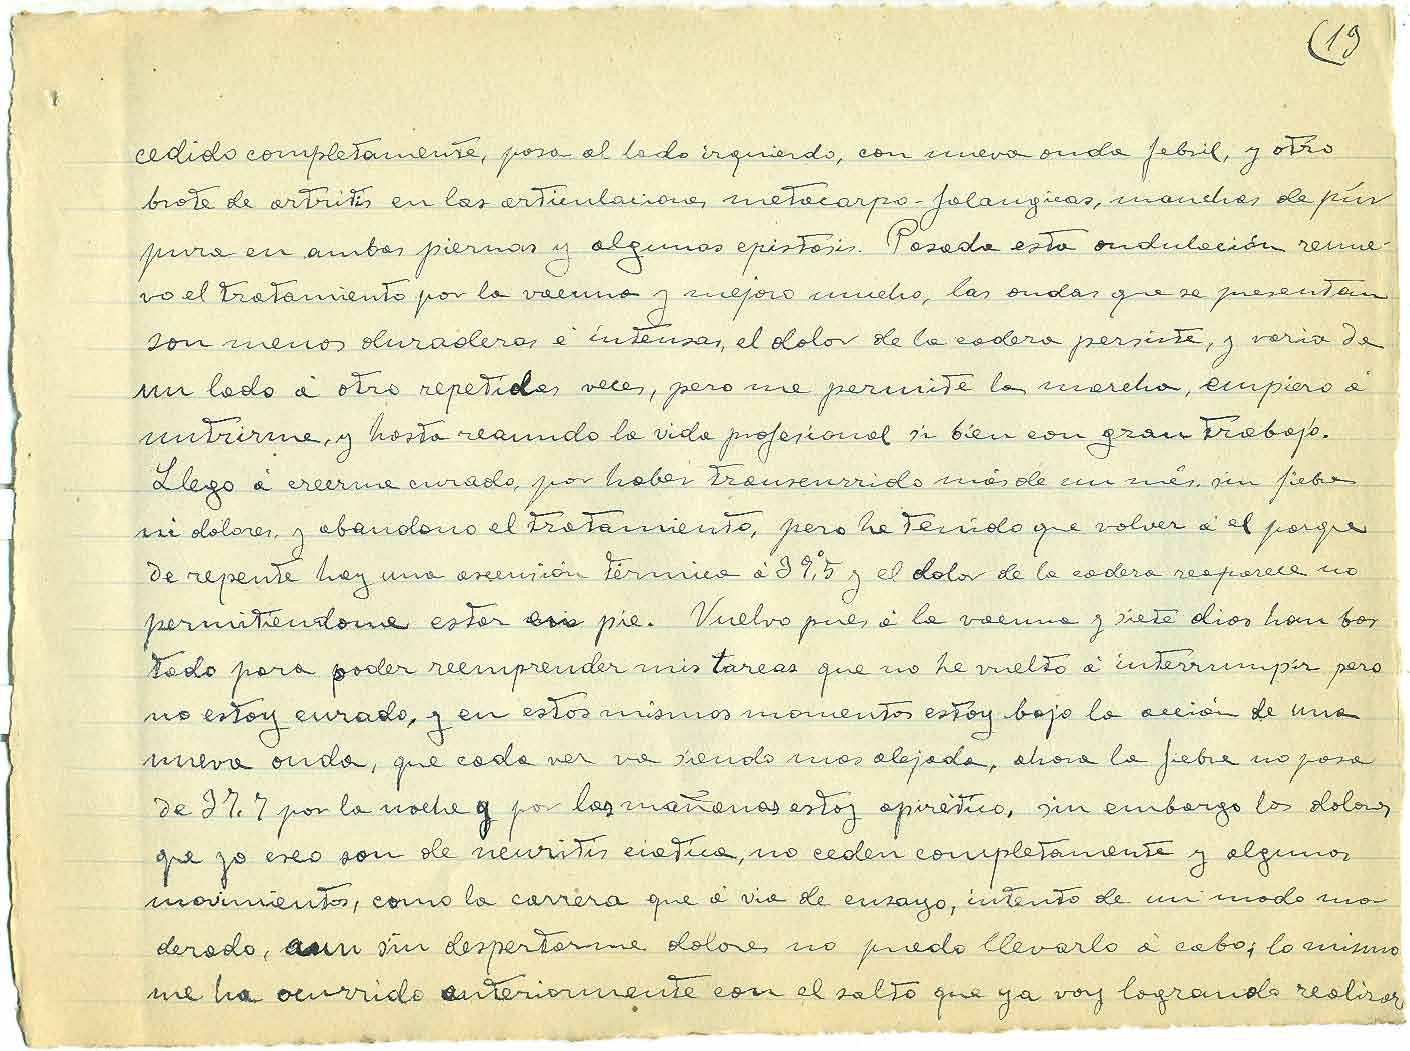 (19
cedido completamente, pasa al lado izquierdo, con nueva onda febril, y otro
brote de artritis en las articulaciones metacarpo-falangicas, manchas de púr
pura en ambas piernas y algunas epistasis. Pasada esta ondulación renue-
vo el tratamiento por la vacuna y mejoro mucho, las ondas que se presentan
son menos duraderas é intensas, el dolor de la cadera persiste, y varia de
un lado á otro repetidas veces, pero me permite la marcha, empiezo á
nutrirme, y hasta reanundo la vida profesional si bien con gran trabajo.
Llego á creerme curado, por haber transcurrido más de un més. sin fiebre
ni dolores, y abandono el tratamiento, pero he tenido que volver á el porque
de repente hay una ascensión térmica á 39,°5 y el dolor de la cadera reaparece no
permitiendome estar en pie. Vuelvo pues á la vacuna y siete dias han bas
tado para poder reemprender mis tareas que no he vuelto á interrumpir pero
no estoy curado, y en estos mismos momentos estoy bajo la acción de una
nueva onda, que cada vez va siendo mas alejada, ahora la fiebre no pasa
de 37,7 por la noche y por las mañanas estoy apirético, sin embargo los dolores
que yo creo son de neuritis ciatica, no ceden completamente y algunos
movimientos, como la carrera que á via de ensayo, intento de un modo mo-
derado, aun sin despertarme dolores no puedo llevarlo á cabo; lo mismo
me ha ocurrido anteriormente con el salto que ya voy logrando realizar